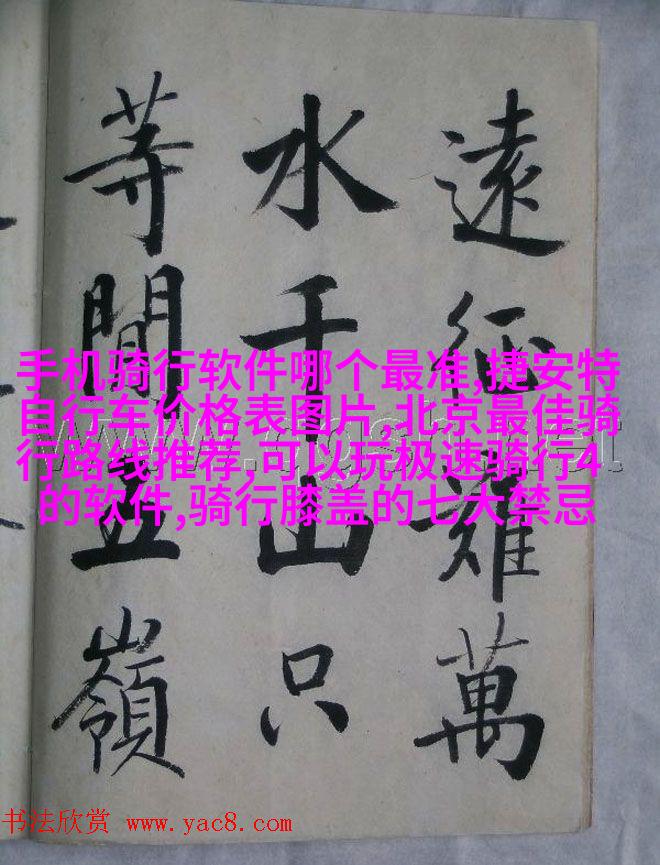 遠征難萬
水千山只
等閒五嶺
手机骑行软件哪个最准,捷安特
自行车价格表图片,北京最佳骑
行路线推荐,可以玩极速骑行4
的软件,骑行膝盖的七大禁忌
书法欣赏 www.yac8.com